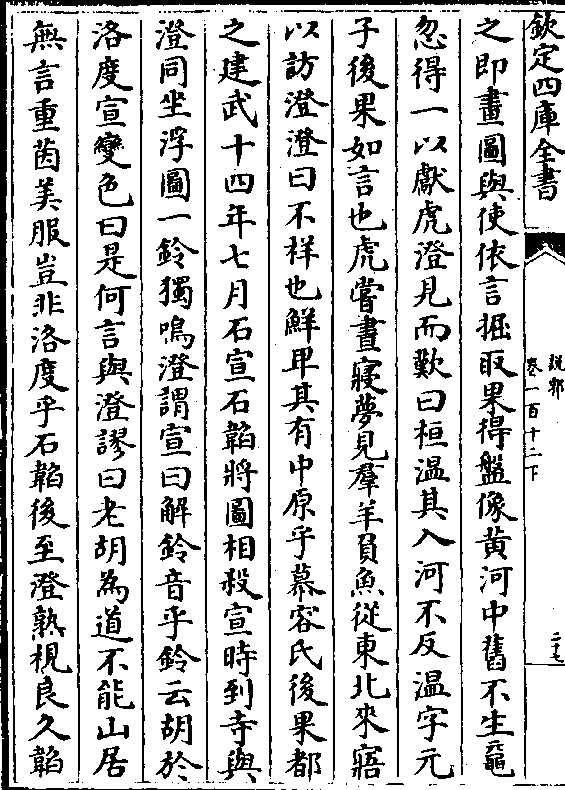 欽定四庫全書
說郛
卷一百十二下
二十七
之即畫圖與使依言掘取果得盤像黃河中舊不生黿
忽得一以獻虎澄見而歎曰桓温其入河不反温字元
子後果如言也虎嘗晝寢夢見羣羊負魚從東北來寤
以訪澄澄曰不祥也鮮卑其有中原乎慕容氏後果都
之建武十四年七月石宣石韜將圖相殺宣時到寺與
澄同坐浮圖一鈴獨鳴澄謂宣曰解鈴音乎鈴云胡於
洛度宣變色曰是何言與澄謬曰老胡為道不能山居
無言重茵美服豈非洛度乎石韜後至澄熟視良久韜